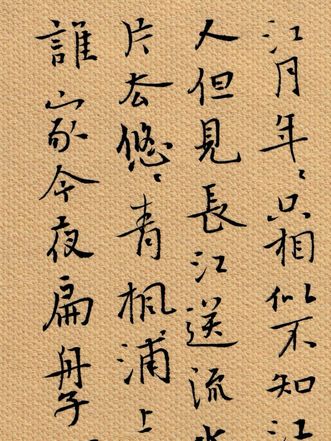 江月年〻只相似不知江
人但見長江送流水
片去悠〻青楓浦上
誰家今夜扁舟子